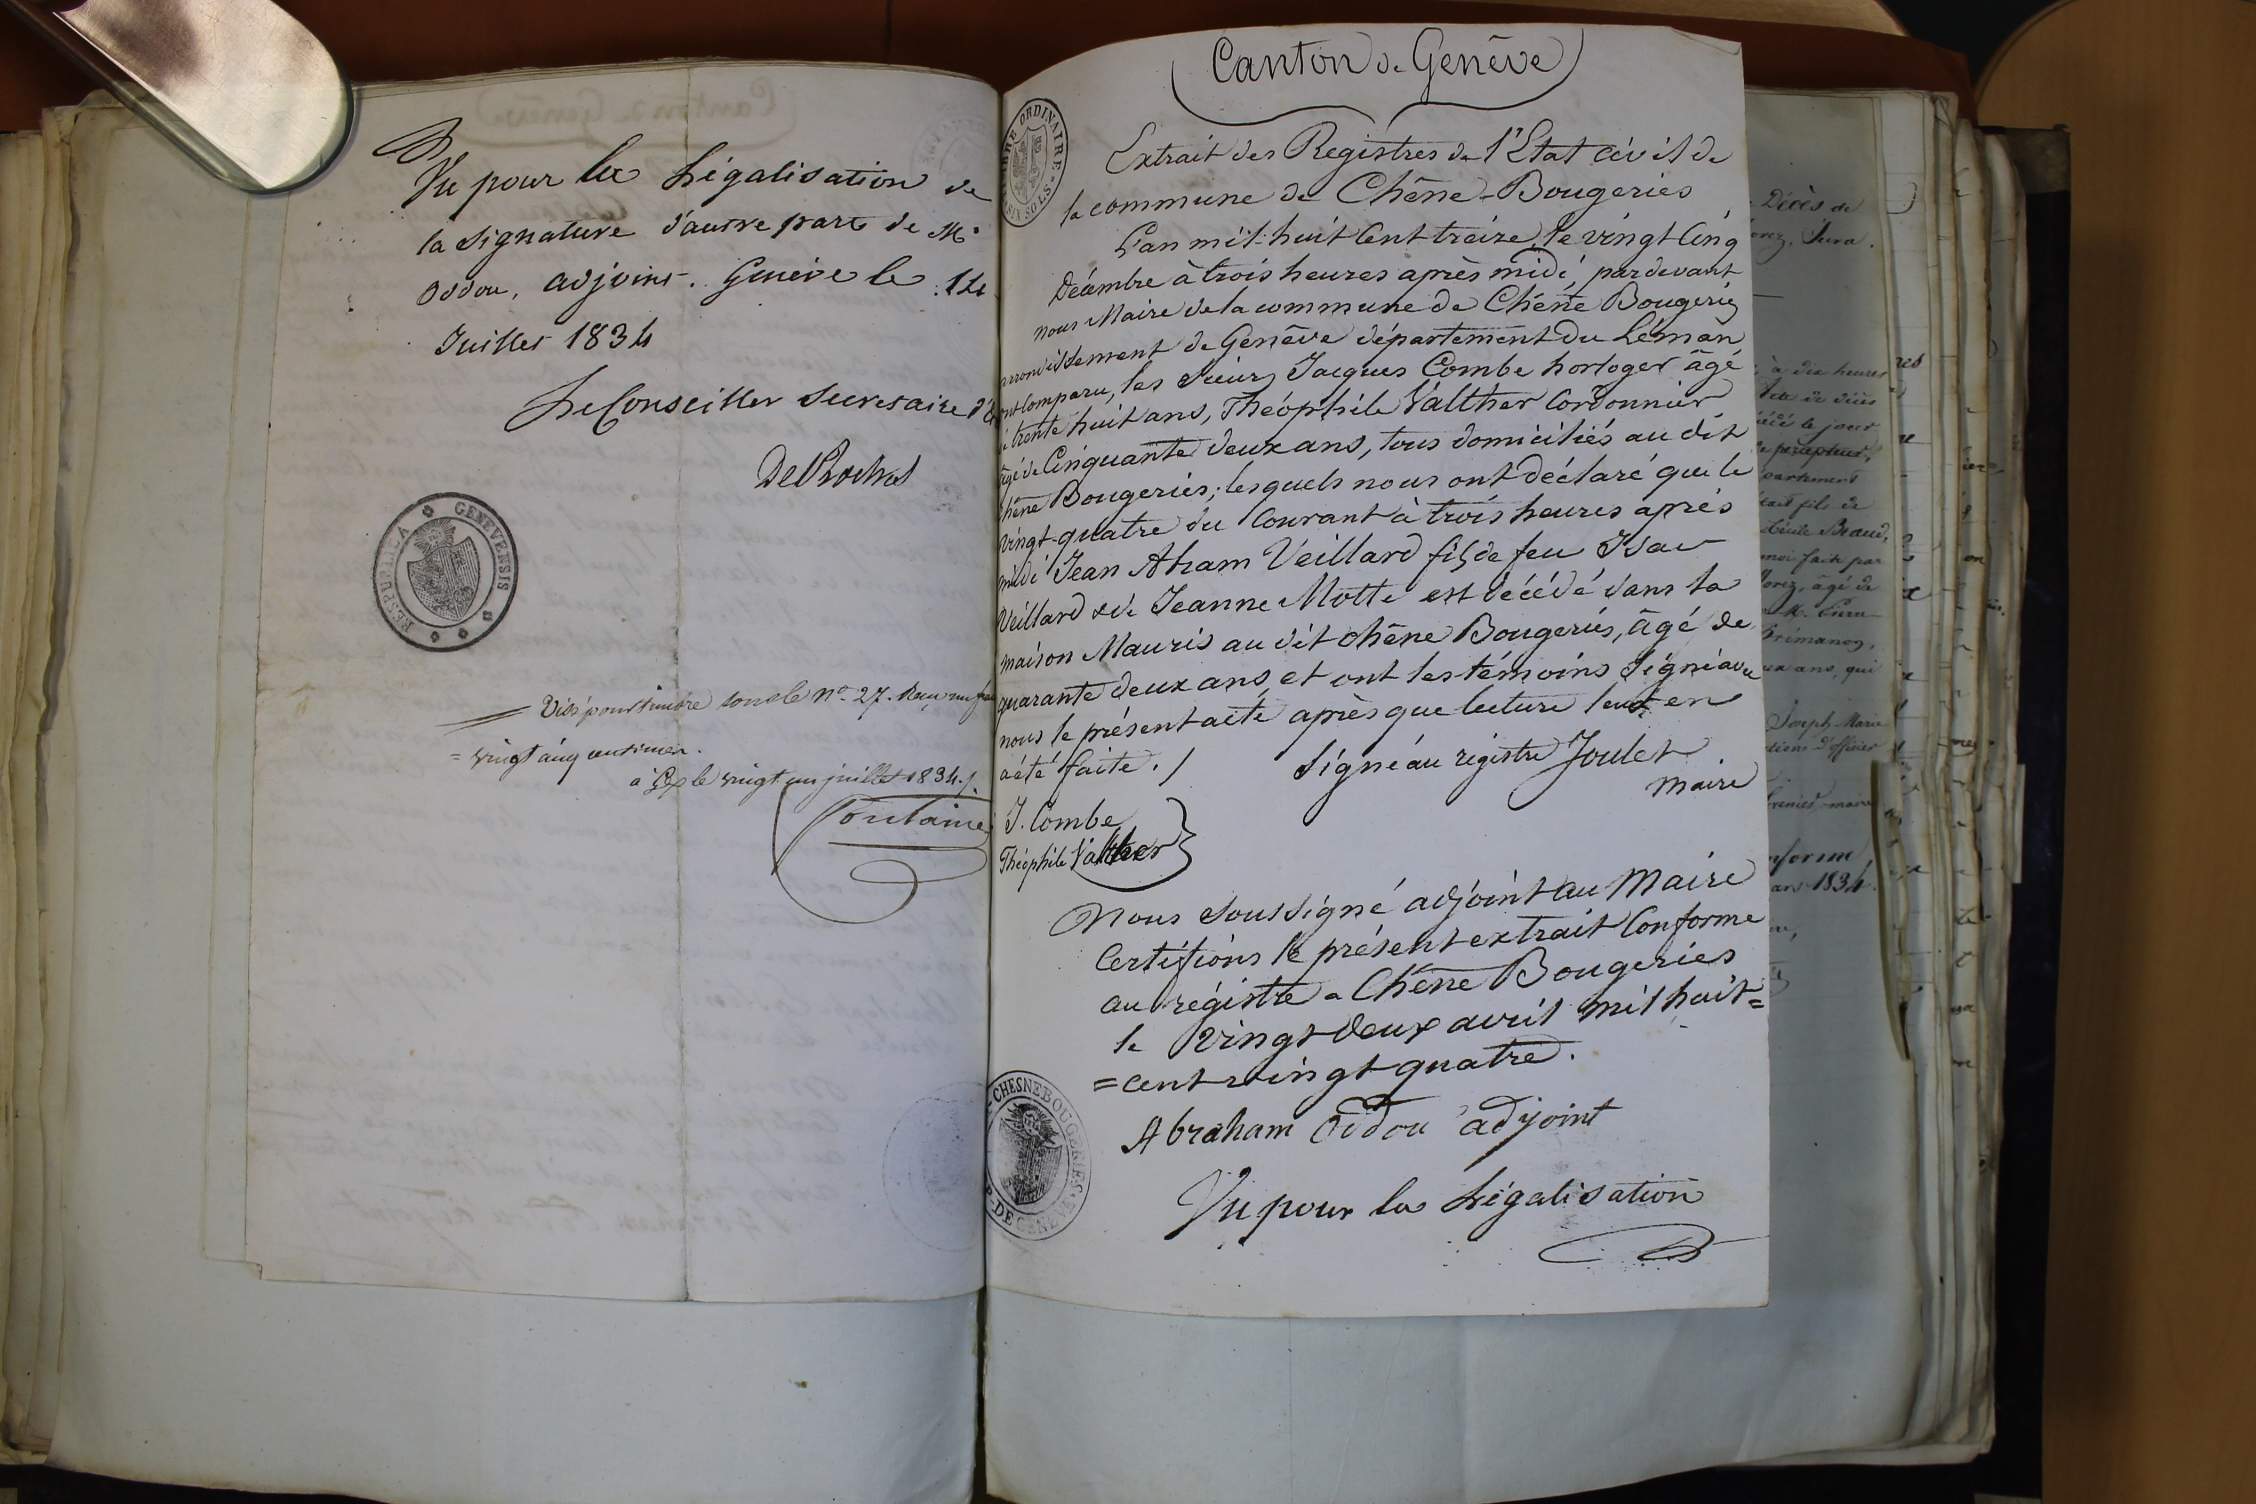 Vu pour la Légalisation de
la signature d'autre part de Mr
Oddou, adjoint. Genève le 14
Juillet 1834
Le Conseiller Secretaire d'
DeRochas
RESPUBLICA GENEVENSIS
Visé pour timbre sous le No 27. Reçu un
= vingt cinq centimes.
à Gex le vingt un juillet 1834 /.
Fontaine
Canton de Genêve
ORDINAIRE
SIX SOLS
Extrait des Registres de l'Etat civil de
la commune de Chêne-Bougeries
L'an mil huit Cent treize, le vingt Cinq
Décembre à trois heures après midi, pardevant
nous Maire de la commune de Chêne Bougeries
arrondissement de Genêve département du Léman
ont Comparu, les Sieurs Jacques Combe horloger âgé
de trente huit ans, Théophile Valther Cordonnier
âgé de Cinquante deux ans, tous domiciliés au dit
Chêne Bougeries; lesquels nous ont déclaré que le
vingt-quatre du Courant à trois heures après
midi Jean Aham Veillard fils de feu Isac
Veillard & de Jeanne Motte est décédé dans la
maison Mauris au dit chêne Bougeries, âgé de
quarante deux ans et ont les témoins Signé avec
nous le présent acte après que lecture leur en
a été faite. / Signé au registre Joulet
Maire
J. Combe
Théophile Valther
Nous soussigné adjoint au Maire
Certifions le présent extrait Conforme
au régistre a Chêne Bougeries
le vingt deux avril mil huit =
= cent vingt quatre.
Abraham Oddou adjoint
CHESNEBOUGERIES
DE GENEVE
Vu pour la Légalisation
Décès de
Jura.
à dix heures
décédé le jour
partement
était fils de
moi fait par
âgé de
ans, qui
Joseph Marie
d'officier
maire
1834.